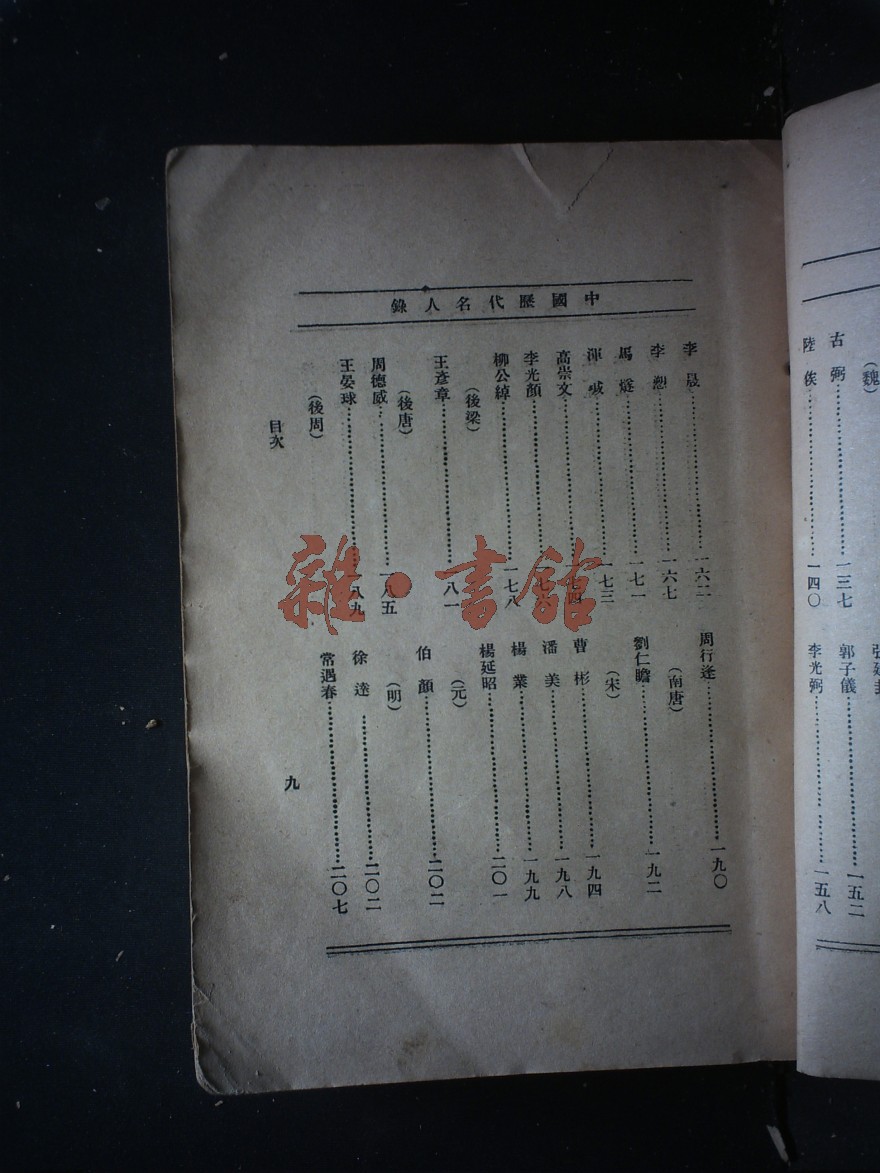 中國歷代名人錄
李晟……一六二
李愬……一六七
馬燧……一七一
渾瑊……一七三
高崇文……一七四
李光顏……一七六
柳公綽……一七八
（後梁）
王彥章……一八一
（後唐）
周德威……一八五
王晏球……一八九
（後周）
周行逢……一九〇
（南唐）
劉仁瞻……一九二
（宋）
曹彬……一九四
潘美……一九八
楊業……一九九
楊延昭……二〇一
（元）
伯顏……二〇二
（明）
徐達……二〇二
常遇春……二〇七
目次
九
（魏）
古弼……一三七
陸俟……一四〇
郭子儀……一五二
李光弼……一五八
雜·書館